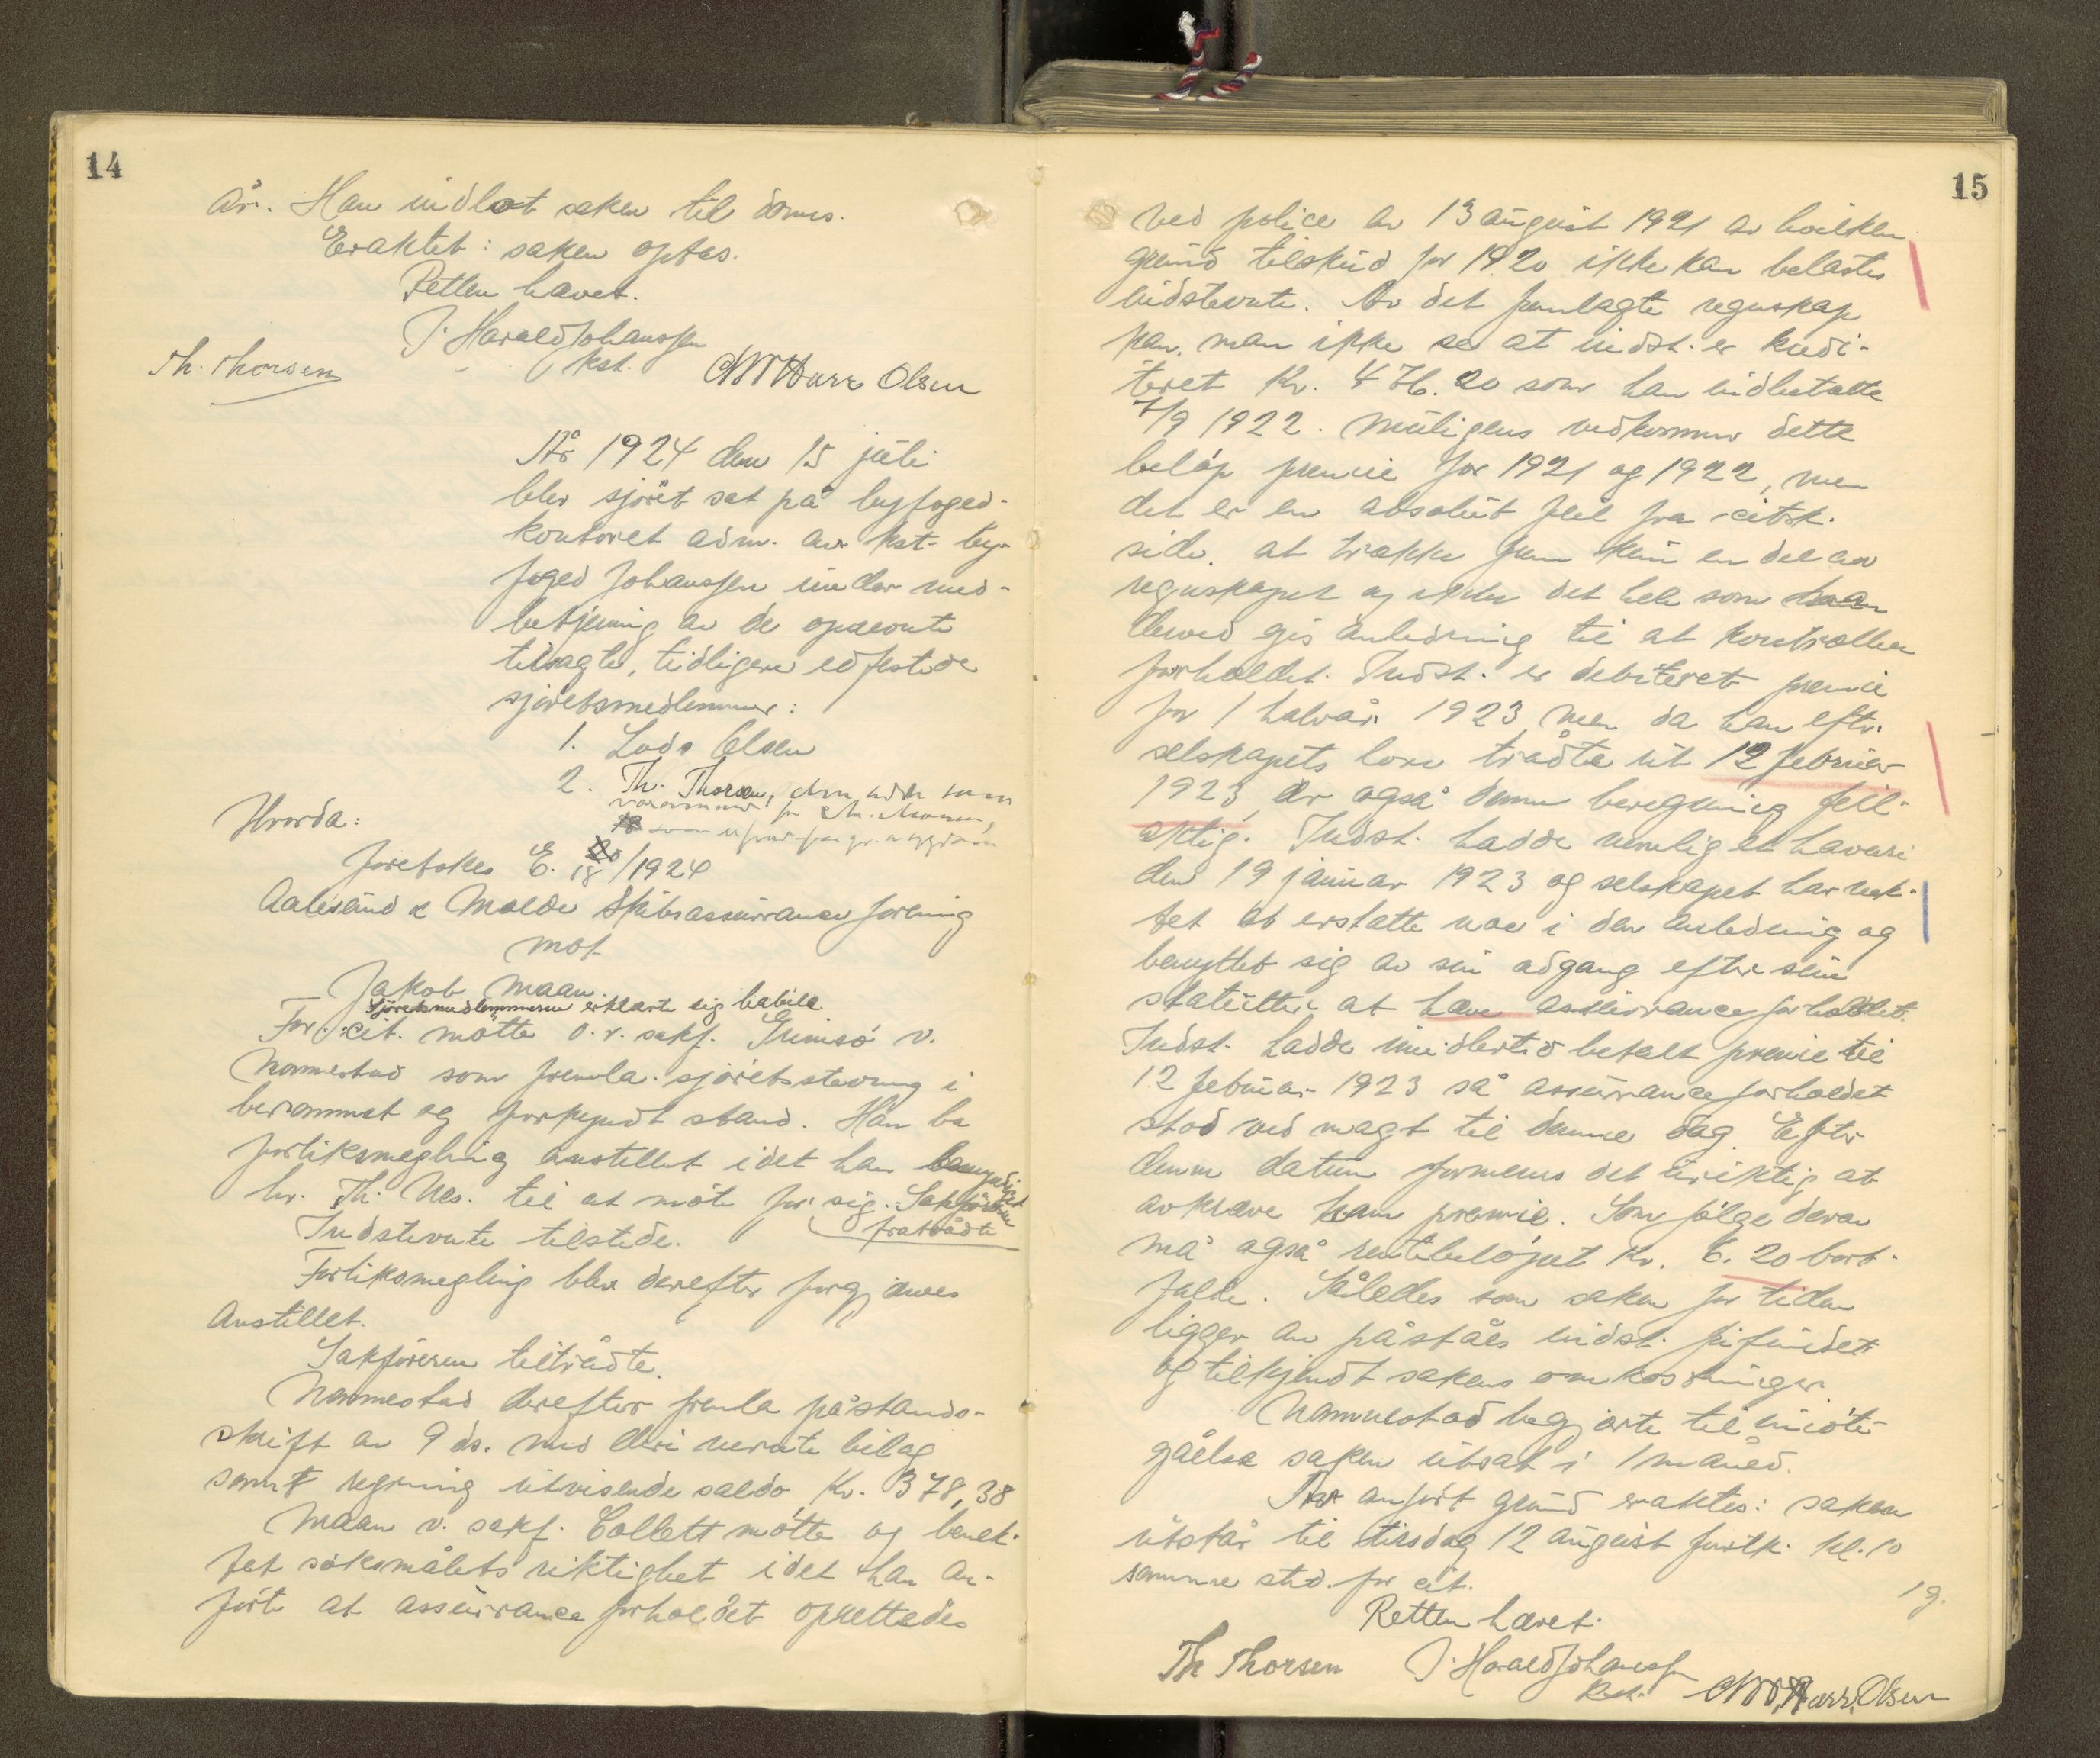 14
år. Han indlot saken til doms.
Eraktet: saken optas.
Retten hævet.
J. Harald Johanssen
kst.
Th. Thorsen
Olsen
År 1924 den 15 juli
blev sjøret sat på byfoged-
kontoret adm. av kst. by-
foged Johanssen under med-
betjening av de opnevnte
tilsagte, tidligere edfestede
sjøretsmedlemmer:
1. Lods Olsen
2. Th. Thorsen, den siste som
varamand for
som
Hvorda:
foretokes E. 18/1924
Aalesund & Molde Skibsassuranceforening
mot
Jakob Maan.
Sjøretsmedlemmerne erklærte sig habile
For cit. møtte o.r. sakf. Grimsø v.
Nannestad som fremla sjøretsstevning i
berammet og forkyndt stand. Han ba
forliksmegling anstillet idet han bemyndiget
hr. Th. Nes. til at møte for sig. Sakføreren
fratrådte
Indstevnte tilstede.
Forliksmegling blev derefter forgjæves
anstillet.
Sakføreren tiltrådte.
Nannestad derefter fremla påstands-
skrift av 9 ds. med deri nevnte bilag
samt regning utvisende saldo Kr. 378,38
Maan v. sakf. Collett møtte og benek-
tet søksmålets riktighet idet han an-
førte at assuranceforholdet oprettedes
15
ved police av 13 august 1921 av hvilken
grund tilskud for 1920 ikke kan belastes
indstevnte. Av det fremlagte regnskap
kan man ikke se at indst. er kredi-
teret Kr. 476.20 som han indbetalte
7/9 1922. Muligens vedkommer dette
beløp premie for 1921 og 1922, men
det er en absolut feil fra citst.
side at trække frem kun en del av
regnskapet og ikke det hele som
derved gis anledning til at kontrollere
forholdet. Indst. er debiteret premie
for 1 halvår 1923 men da han efter
selskapets love trådte ut 12 februar
1923, er også denne beregning feil-
aktig. Indst. hadde nemlig et havari
den 19 januar 1923 og selskapet har nek-
tet at erstatte noe i den anledning og
benyttet sig av sin adgang efter sine
statutter at hæve assuranceforholdet.
Indst. hadde imidlertid betalt premie til
12 februar 1923 så assuranceforholdet
stod ved magt til denne dag. Efter
denne datum formenes det uriktig at
avkræve ham premie. Som følge derav
må også rentebeløpet Kr. 6.20 bort-
falde. Således som saken for tiden
ligger an påståes indst. frifundet
og tilkjendt sakens omkostninger.
Nannestad begjærte til imøte-
gåelse saken utsat i 1 måned.
Av anført grund eraktes: saken
utstår til tirsdag 12 august førstk. kl. 10
samme sted for cit.
1 g.
Retten hævet.
Th Thorsen
J. Harald Johanssen
kst.
Olsen